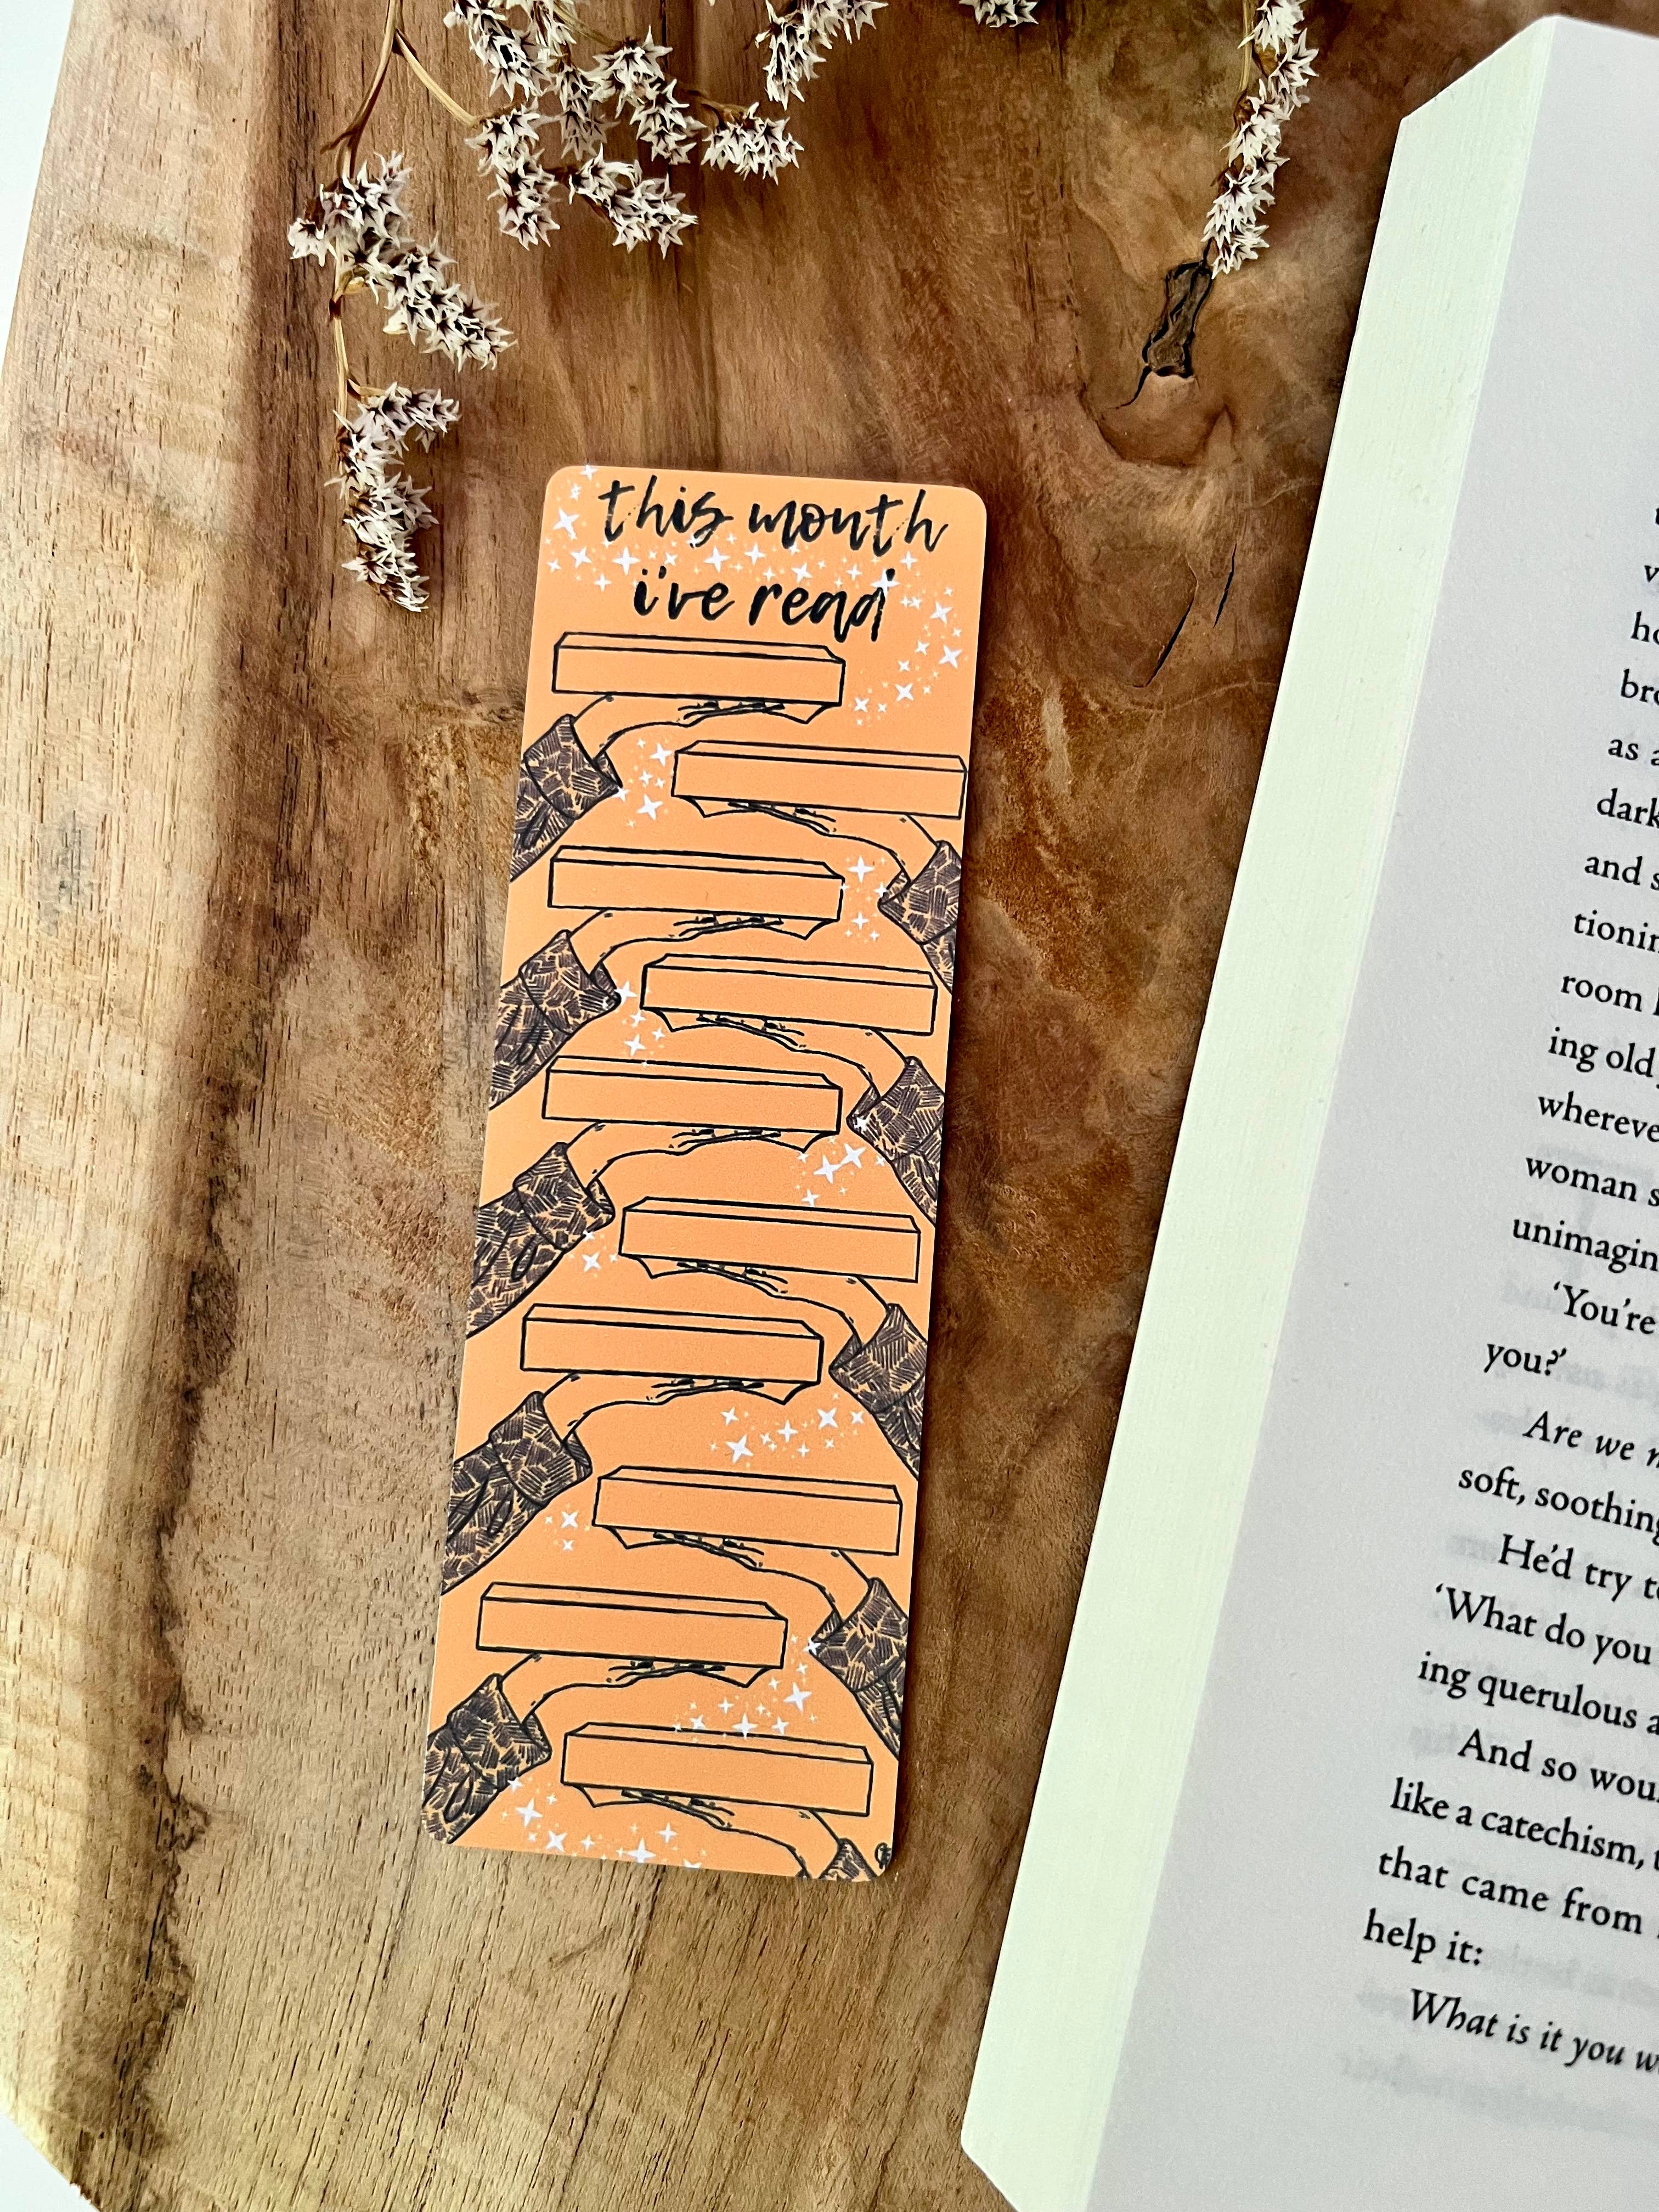 this month
i've read
ho
as a
dark
and s
room
ing old
whereve
woman s
unimagin
‘You’re
you?’
Are we
soft, soothing
He’d try to
‘What do you
ing querulous a
And so wou
like a catechism,
that came from
help it:
What is it you w